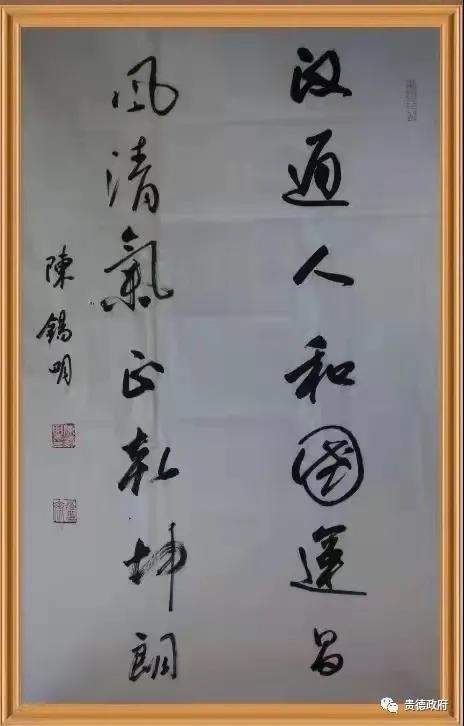 政通人和國運昌
風清氣正乾坤朗
陳錫明
贵德政府